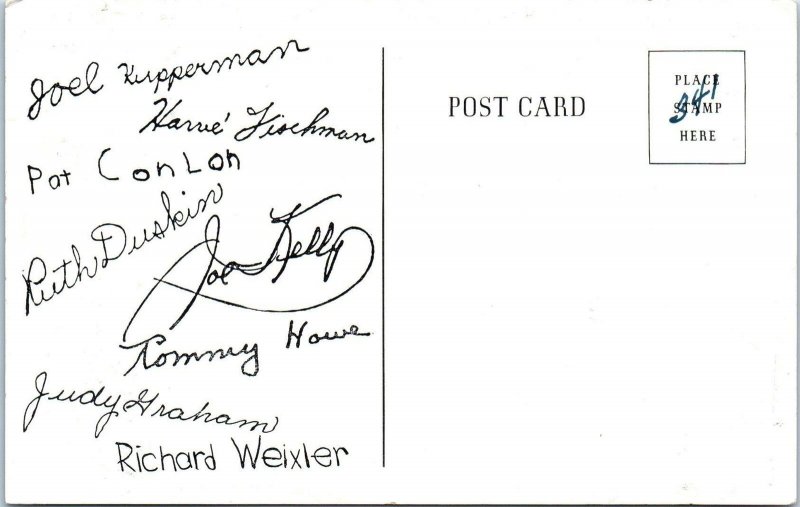 Joel Kupperman
Harve' Fischman
Pat ConLon
Ruth Duskin
Joe Kelly
Tommy Howe
Judy Graham
Richard Weixler
POST CARD
PLACE
STAMP
HERE
341